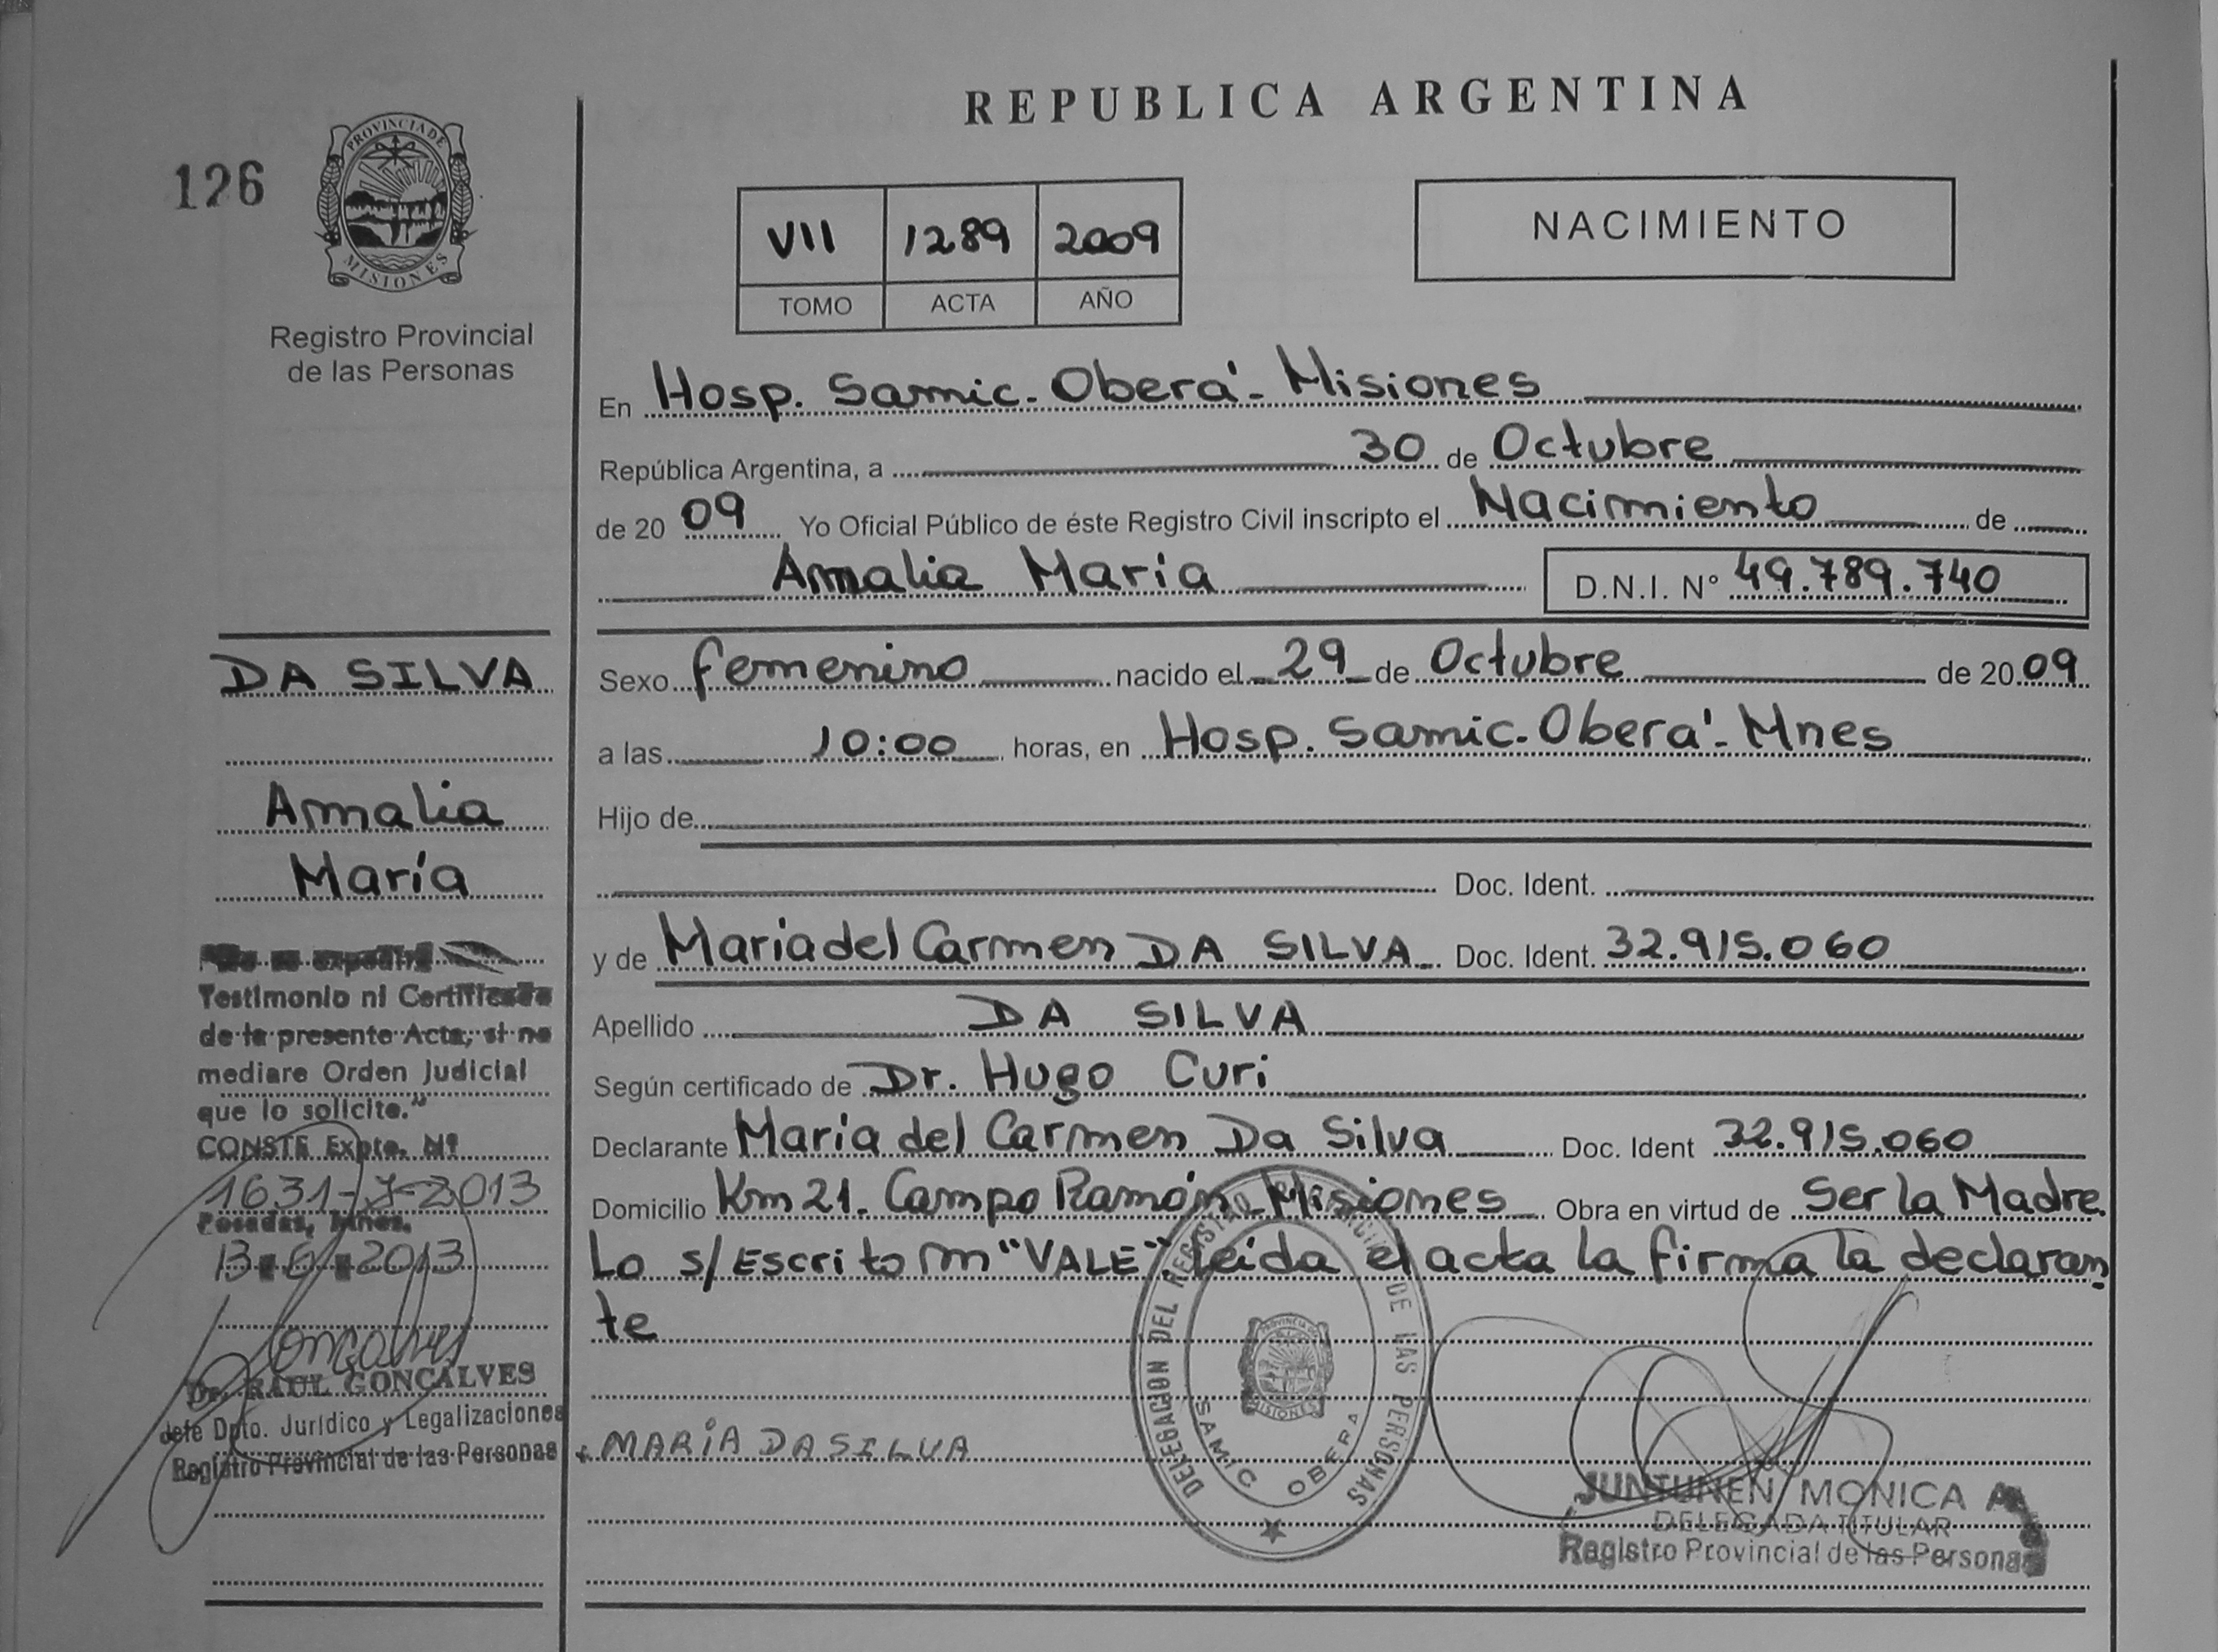 REPUBLICA ARGENTINA
126
PROVINCIA DE
MISIONES
Registro Provincial
de las Personas
VII 1289 2009
TOMO ACTA AÑO
NACIMIENTO
En Hosp. Samic. Oberá - Misiones
República Argentina, a 30 de Octubre
de 20 09 Yo Oficial Público de éste Registro Civil inscripto el Nacimiento de
Amalia María D.N.I. N° 49.789.740
Sexo femenino nacido el 29 de Octubre de 20 09
a las 10:00 horas, en Hosp. Samic. Oberá - Mnes
Hijo de
Doc. Ident.
y de Maria del Carmen DA SILVA Doc. Ident. 32.915.060
Apellido DA SILVA
Según certificado de Dr. Hugo Curi
Declarante Maria del Carmen Da Silva Doc. Ident 32.915.060
Domicilio Km 21. Campo Ramón - Misiones Obra en virtud de Ser la Madre.
Lo s/Escrito m "VALE" leida el acta la firma la declaran-
te
MARIA DA SILVA
DELEGACION DEL REGISTRO PROVINCIAL DE LAS PERSONAS
SAMIC OBERA
PROVINCIA DE
MISIONES
JUNTUNEN MONICA
DELEGADA TITULAR
Registro Provincial de las Personas
DA SILVA
Amalia
María
se expedirá
Testimonio ni Certificado
de la presente Acta, si no
mediare Orden Judicial
que lo solicite."
CONSTE Expte. Nº
1631-J-2013
Posadas, Mnes.
13 6 2013
Goncalves
Dr. RAUL GONCALVES
Jefe Dpto. Jurídico y Legalizaciones
Registro Provincial de las Personas